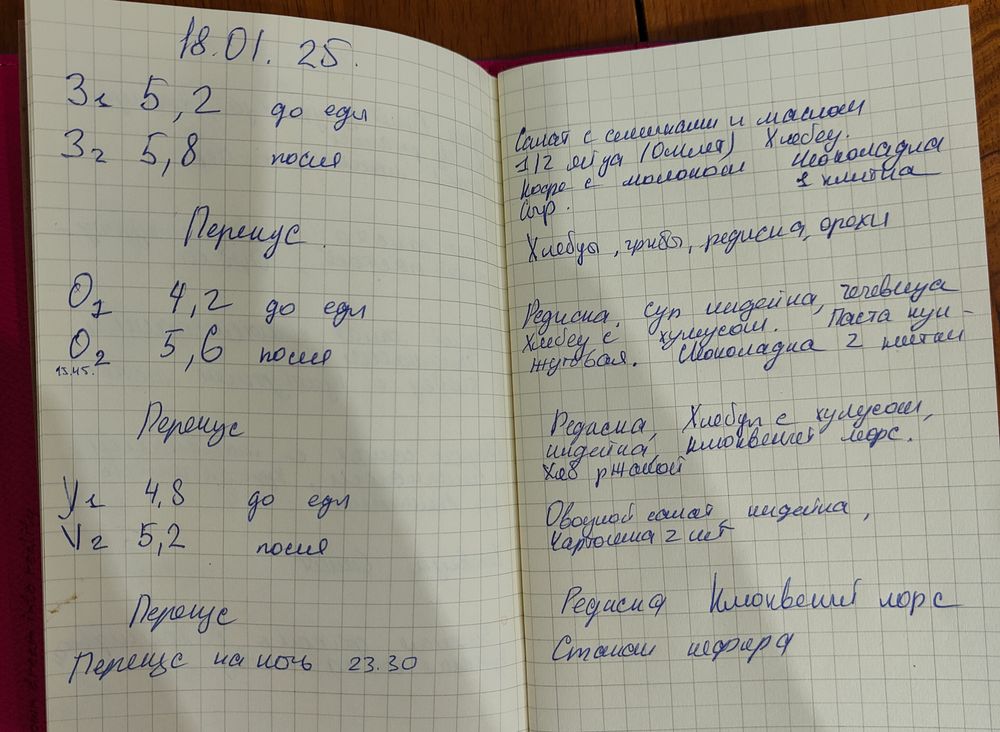 18.01.25.
З1 5,2 до еды
З2 5,8 после
Перекус.
О1 4,2 до еды
О2 5,6 после
13.45.
Перекус
У1 4,8 до еды
У2 5,2 после
Перекус
Перекус на ночь 23.30
Салат с семечками и маслом
1/2 яйца (Омлет) Хлебец.
Кофе с молоком Шоколадка
Сыр. 1 клетка
Хлебцы, грибы, редиска, орехи
Редиска. Суп индейка, чечевица
Хлебец с хумусом. Паста кун-
жутовая. Шоколадка 2 клетки
Редиска, Хлебцы с хумусом,
индейка, клюквенный морс.
Хлеб ржаной
Овощной салат индейка,
Картошка 2 шт
Редиска Клюквенный морс
Стакан кефира